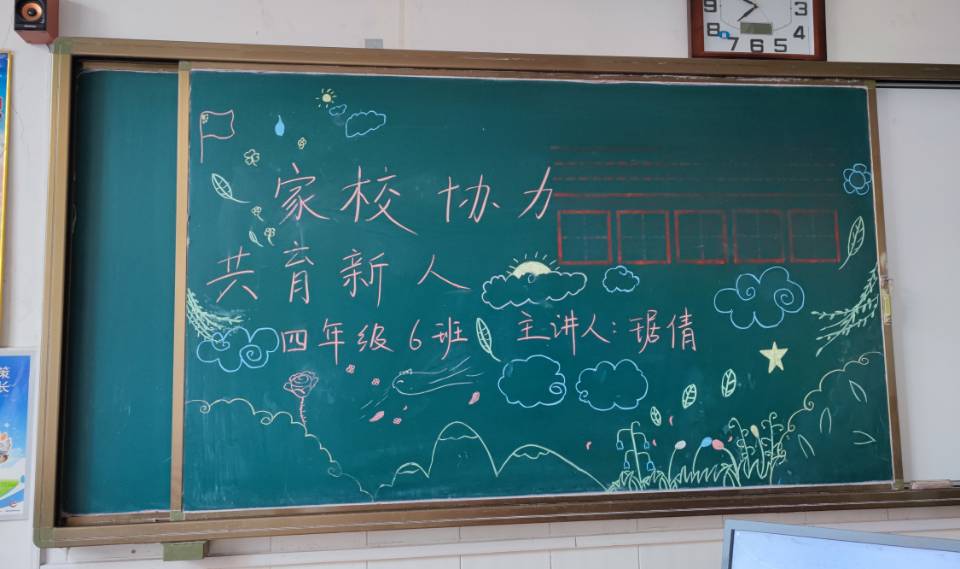 家校协力
共育新人
四年级6班 主讲人:琚倩
9 3
8 4
7 6 5
策
长